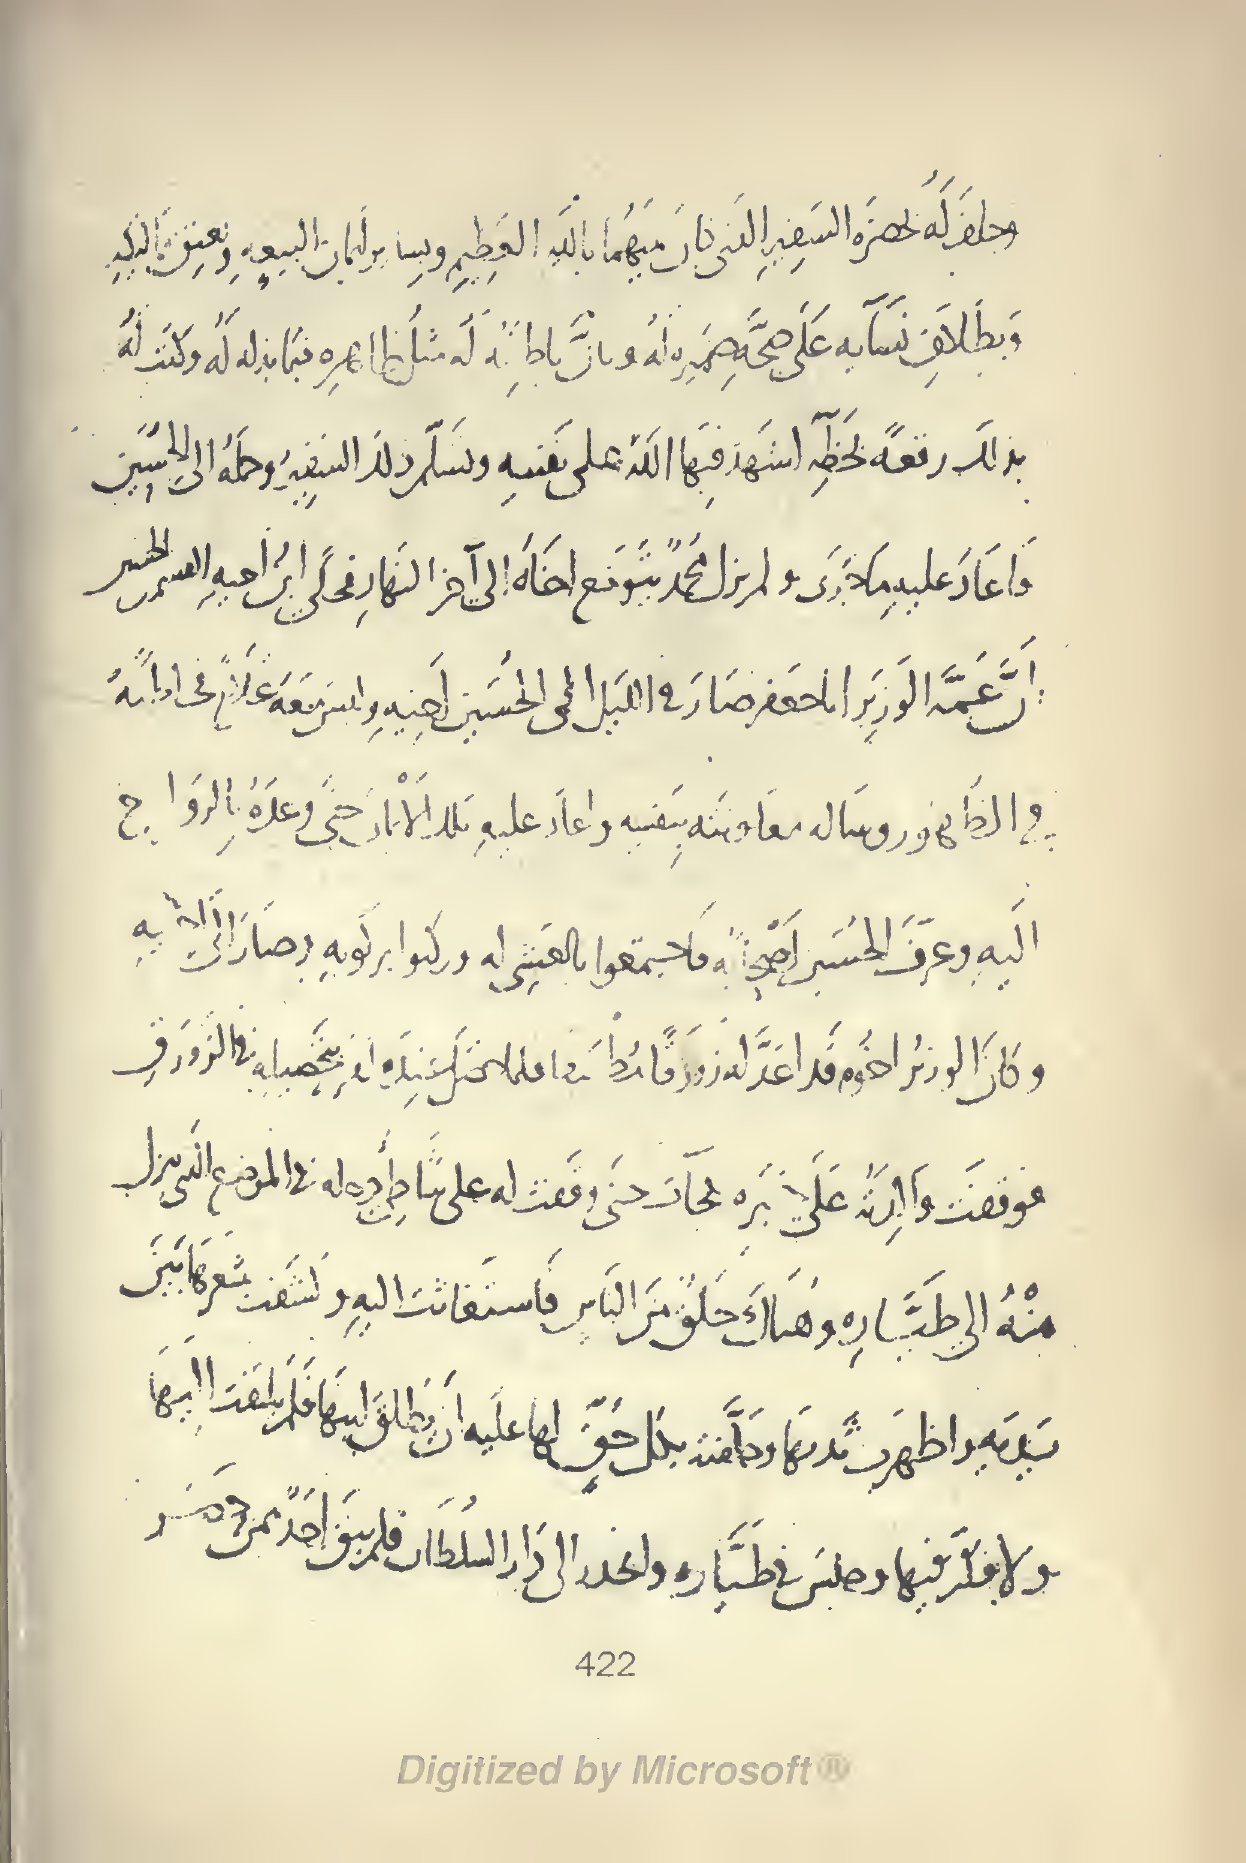 وحلف له بحضرة السفير الذي كان بينهما بالله العظيم وبسائر ايمان البيعة وبعتق مماليكه
وبطلاق نسآيه على صحة ضميره له وبان باطنه له مثل ظاهره فيما بذله له وكتب له
بذلك رقعة بخطه اشهد فيها الله على نفسه وتسلم ذلك السفير وحمله الى الحسين
فاعاد عليه ما جرى ولم يزل محمد يتوقع اخاه الى آخر النهار فحكى ابن اخيه القسم بن الحسين
ان عمه الوزير ابا جعفر صار في الليل الى الحسين اخيه وليس معه غلام فى
في الظهور وساله معاونته بنفسه واعاد عليه تلك الايمان حتى وعده بالرواح
اليه وعرف الحسين اصحابه فاجتمعوا بالعشي له وركبوا بركوبه وصار الى اخيه
وكان الوزير اخوه قد اعد له زورقا مطبقا فلما حصل عنده امر بتحصيله في الزورق
فوقفت والدته على خبره فجآت حتى وقفت له على شاطئ دجلة في الموضع الذي ينزل
منه الى طياره وهناك خلق من الناس فاستغاثت اليه وكشفت شعرها بين
يديه واظهرت ثديها وحلفته بكل حق لها عليه ان يطلق ابنها فلم يلتفت اليها
ولا فكر فيها وجلس في طياره وانحدر الى دار السلطان فلم يبق احد ممن حضر
422
Digitized by Microsoft®